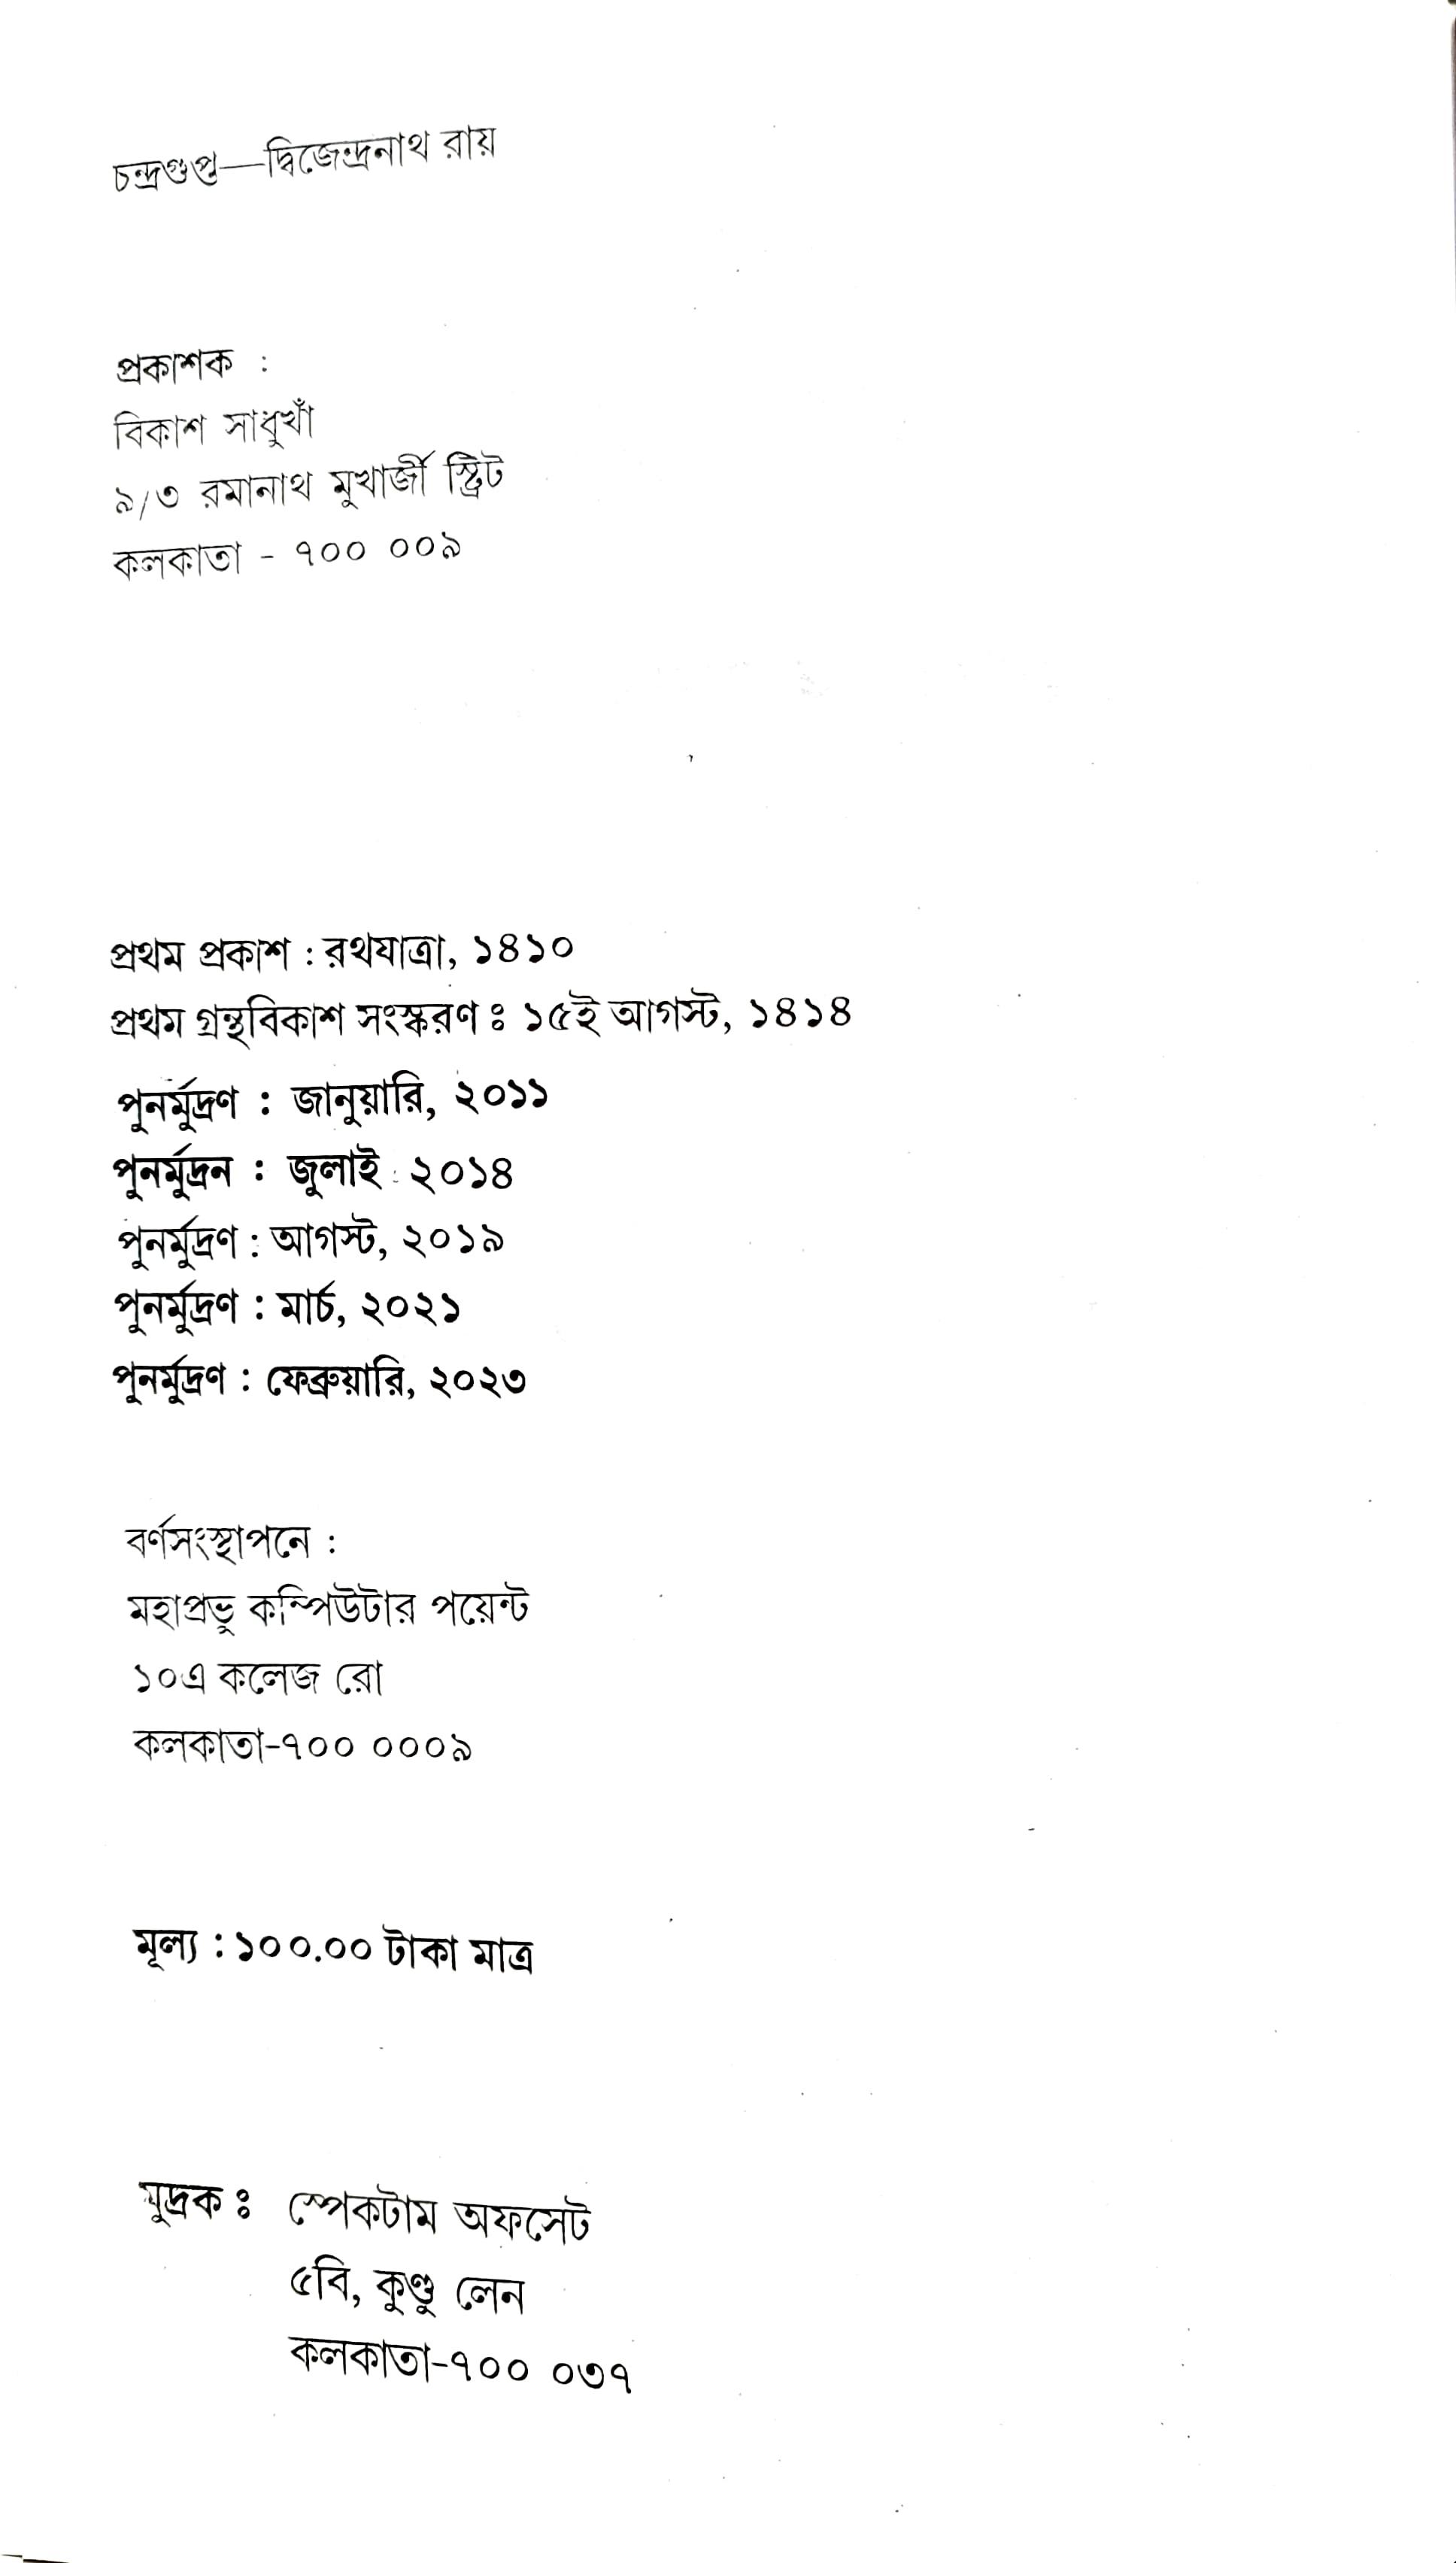 চন্দ্রগুপ্ত—দ্বিজেন্দ্রনাথ রায়
প্রকাশক :
বিকাশ সাধুখাঁ
৯/৩ রমানাথ মুখার্জী স্ট্রিট
কলকাতা - ৭০০ ০০৯
প্রথম প্রকাশ : রথযাত্রা, ১৪১০
প্রথম গ্রন্থবিকাশ সংস্করণ ঃ ১৫ই আগস্ট, ১৪১৪
পুনর্মুদ্রণ : জানুয়ারি, ২০১১
পুনর্মুদ্রন : জুলাই : ২০১৪
পুনর্মুদ্রণ : আগস্ট, ২০১৯
পুনর্মুদ্রণ : মার্চ, ২০২১
পুনর্মুদ্রণ : ফেব্রুয়ারি, ২০২৩
বর্ণসংস্থাপনে :
মহাপ্রভু কম্পিউটার পয়েন্ট
১০এ কলেজ রো
কলকাতা-৭০০ ০০০৯
মূল্য : ১০০.০০ টাকা মাত্র
মুদ্রক ঃ স্পেকটাম অফসেট
৫বি, কুণ্ডু লেন
কলকাতা-৭০০ ০৩৭